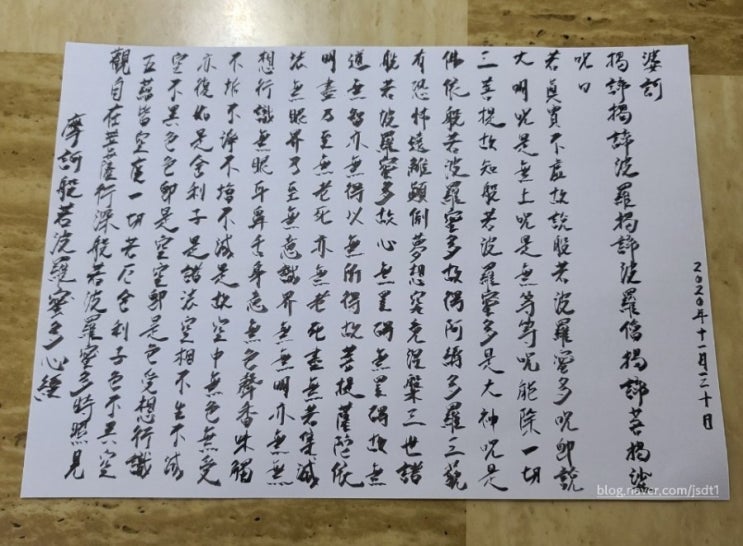 摩訶般若波羅蜜多心經
觀自在菩薩行深般若波羅蜜多時照見
五蘊皆空度一切苦厄舍利子色不異空
空不異色色卽是空空卽是色受想行識
亦復如是舍利子是諸法空相不生不滅
不垢不淨不增不減是故空中無色無受
想行識無眼耳鼻舌身意無色聲香味觸
法無眼界乃至無意識界無無明亦無無
明盡乃至無老死亦無老死盡無苦集滅
道無智亦無得以無所得故菩提薩陀依
般若波羅蜜多故心無罣碍無罣碍故無
有恐怖遠離顚倒夢想究竟涅槃三世諸
佛依般若波羅蜜多故得阿縟多羅三藐
三菩提故知般若波羅蜜多是大神呪是
大明呪是無上呪是無等等呪能除一切
苦眞實不虛故說般若波羅蜜多呪卽說
呪曰
揭諦揭諦波羅揭諦波羅僧揭諦菩揭娑
婆訶
2020年十一月二十日
blog.naver.com/jsdt1